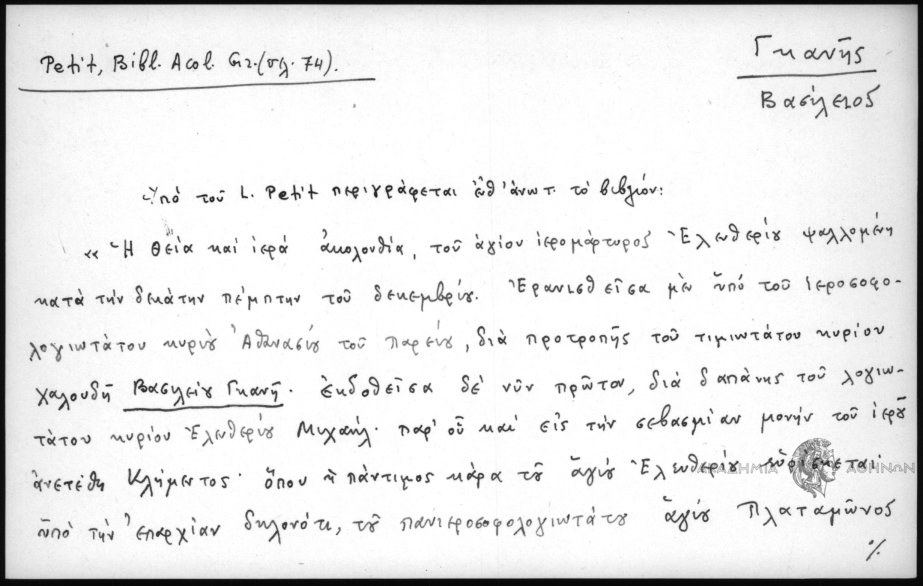 Petit, Bibl. Acol. Gr. (σελ. 74).
Γκανῆς
Βασίλειος
Ὑπό τοῦ L. Petit περιγράφεται ἐνθ' ἀνωτ. τό βιβλίον:
« Ἡ θεία καί ἱερά ἀκολουθία, τοῦ ἁγίου ἱερομάρτυρος Ἐλευθερίου ψαλλομένη
κατά τήν δεκάτην πέμπτην τοῦ δεκεμβρίου. Ἐρανισθεῖσα μέν ὑπό τοῦ ἱεροσοφο-
λογιωτάτου κυρίου Ἀθανασίου τοῦ Παρείου, διά προτροπῆς τοῦ τιμιωτάτου κυρίου
χαλουδῆ Βασιλείου Γκανῆ· ἐκδοθεῖσα δέ νῦν πρῶτον, διά δαπάνης τοῦ λογιω-
τάτου κυρίου Ἐλευθερίου Μιχαήλ· παρ' οὗ καί εἰς τήν σεβασμίαν μονήν τοῦ ἱεροῦ
ἀνετέθη Κλήμεντος· ὅπου ἡ πάντιμος κάρα τοῦ ἁγίου Ἐλευθερίου εὑρίσκεται·
ὑπό τήν ἐπαρχίαν δηλονότι, τοῦ πανιεροσοφολογιωτάτου ἁγίου Πλαταμῶνος
%
ΑΚΑΔΗΜΙΑ ΑΘΗΝΩΝ